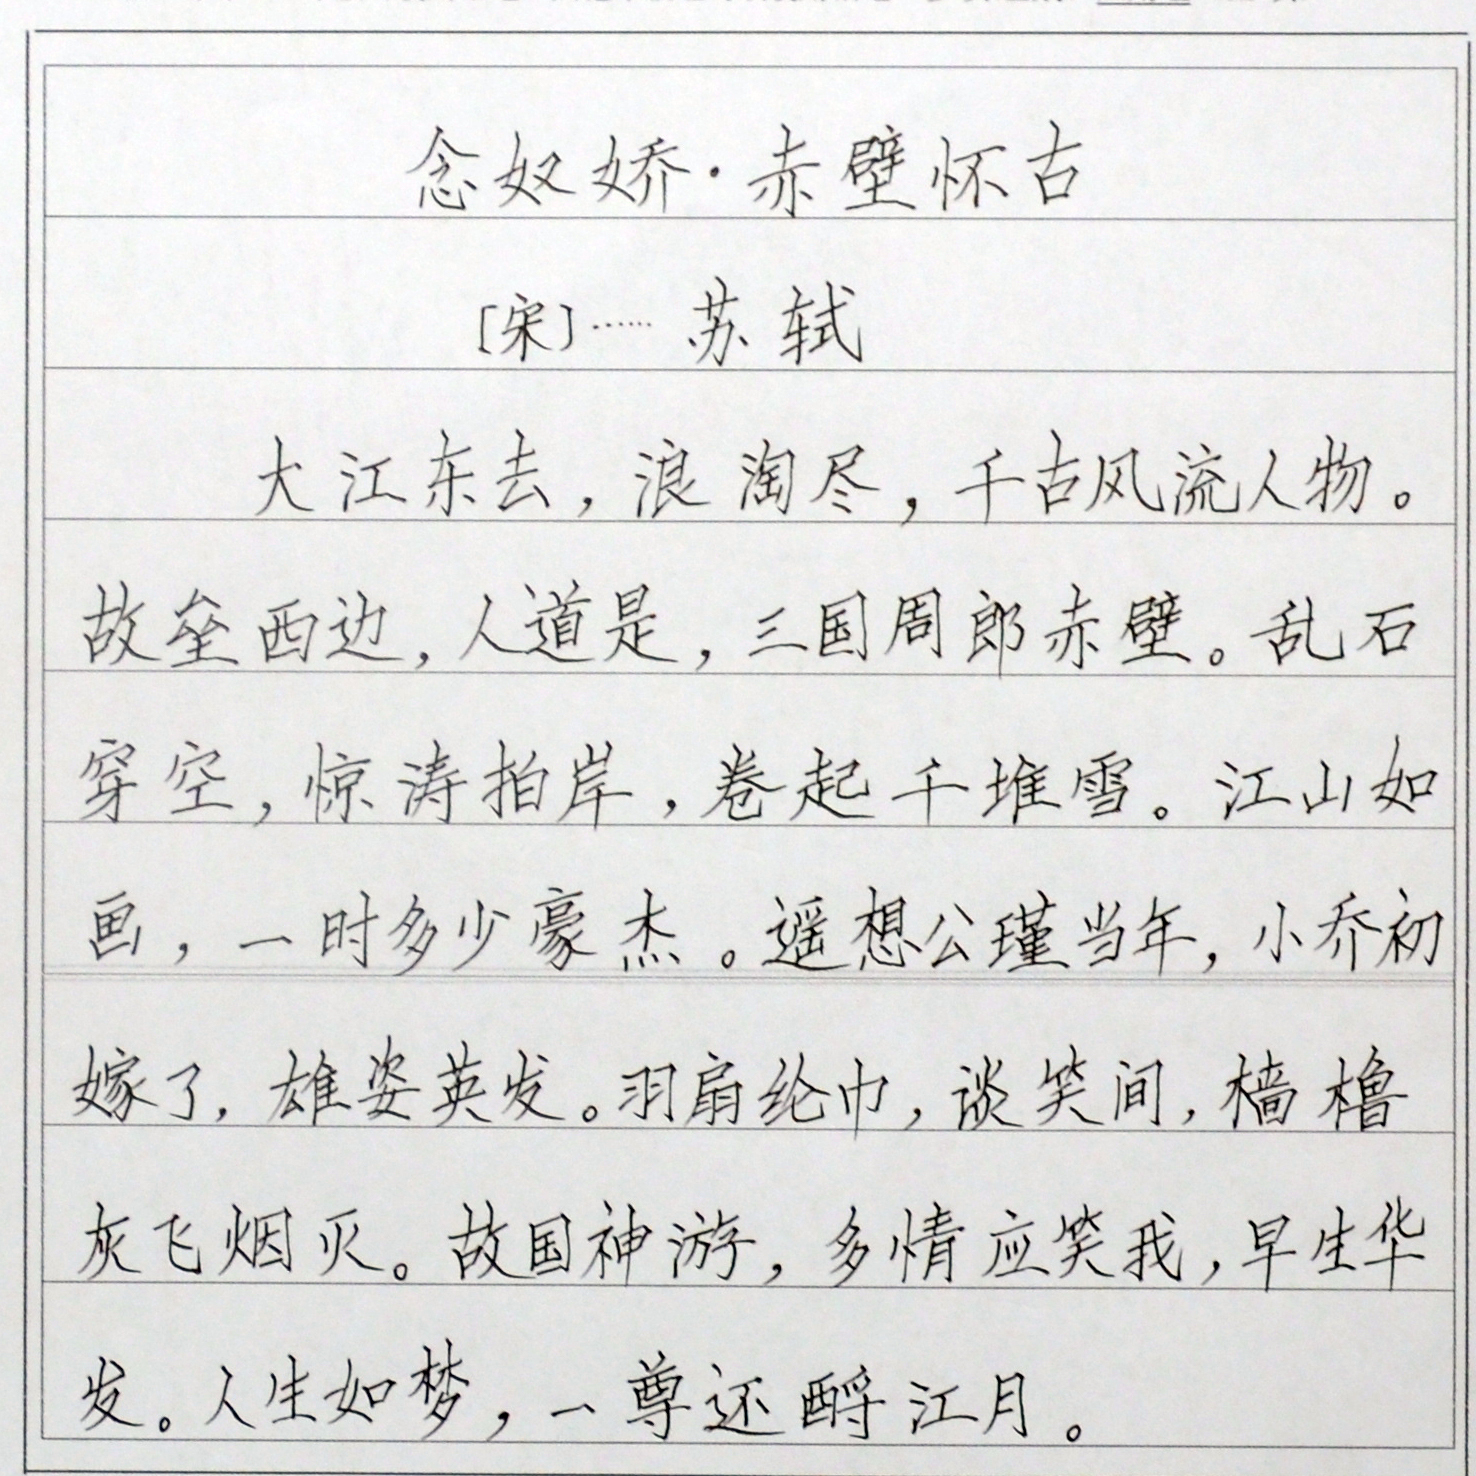 念奴娇·赤壁怀古
[宋]……苏轼
大江东去，浪淘尽，千古风流人物。
故垒西边，人道是，三国周郎赤壁。乱石
穿空，惊涛拍岸，卷起千堆雪。江山如
画，一时多少豪杰。遥想公瑾当年，小乔初
嫁了，雄姿英发。羽扇纶巾，谈笑间，樯橹
灰飞烟灭。故国神游，多情应笑我，早生华
发。人生如梦，一尊还酹江月。